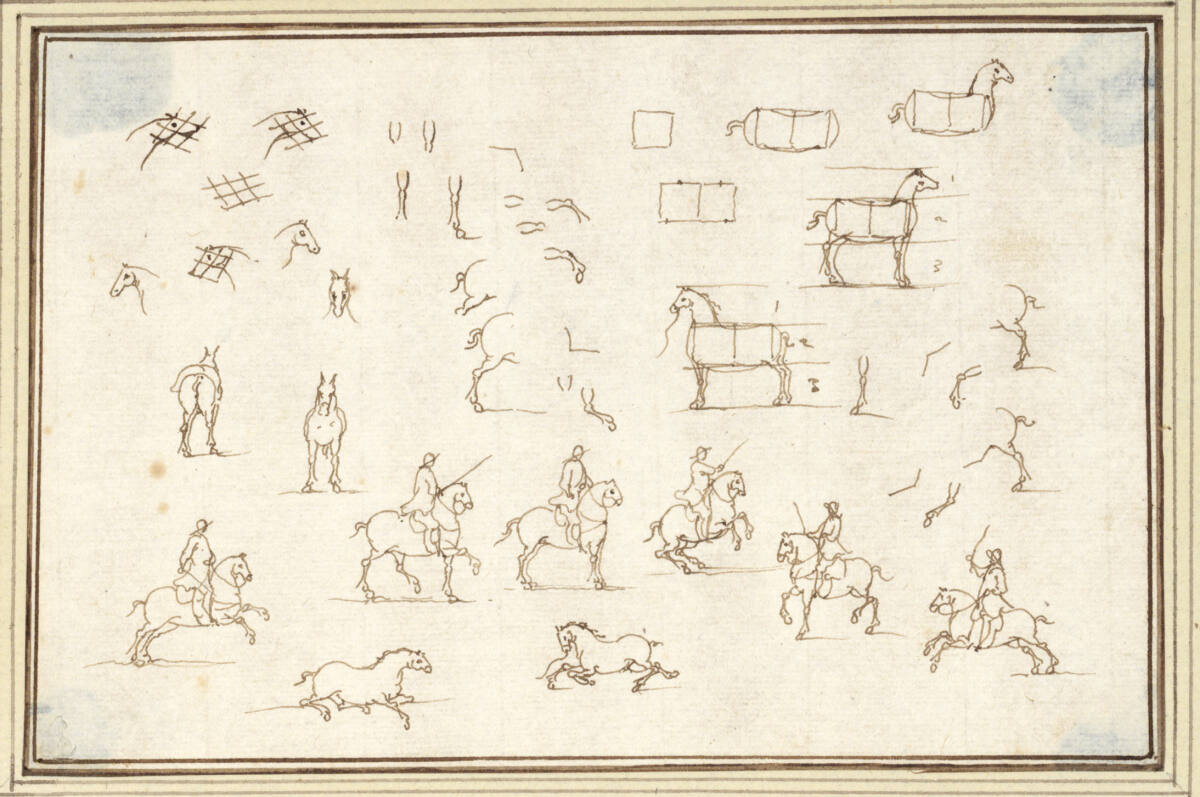 1
2
3
1
2
3